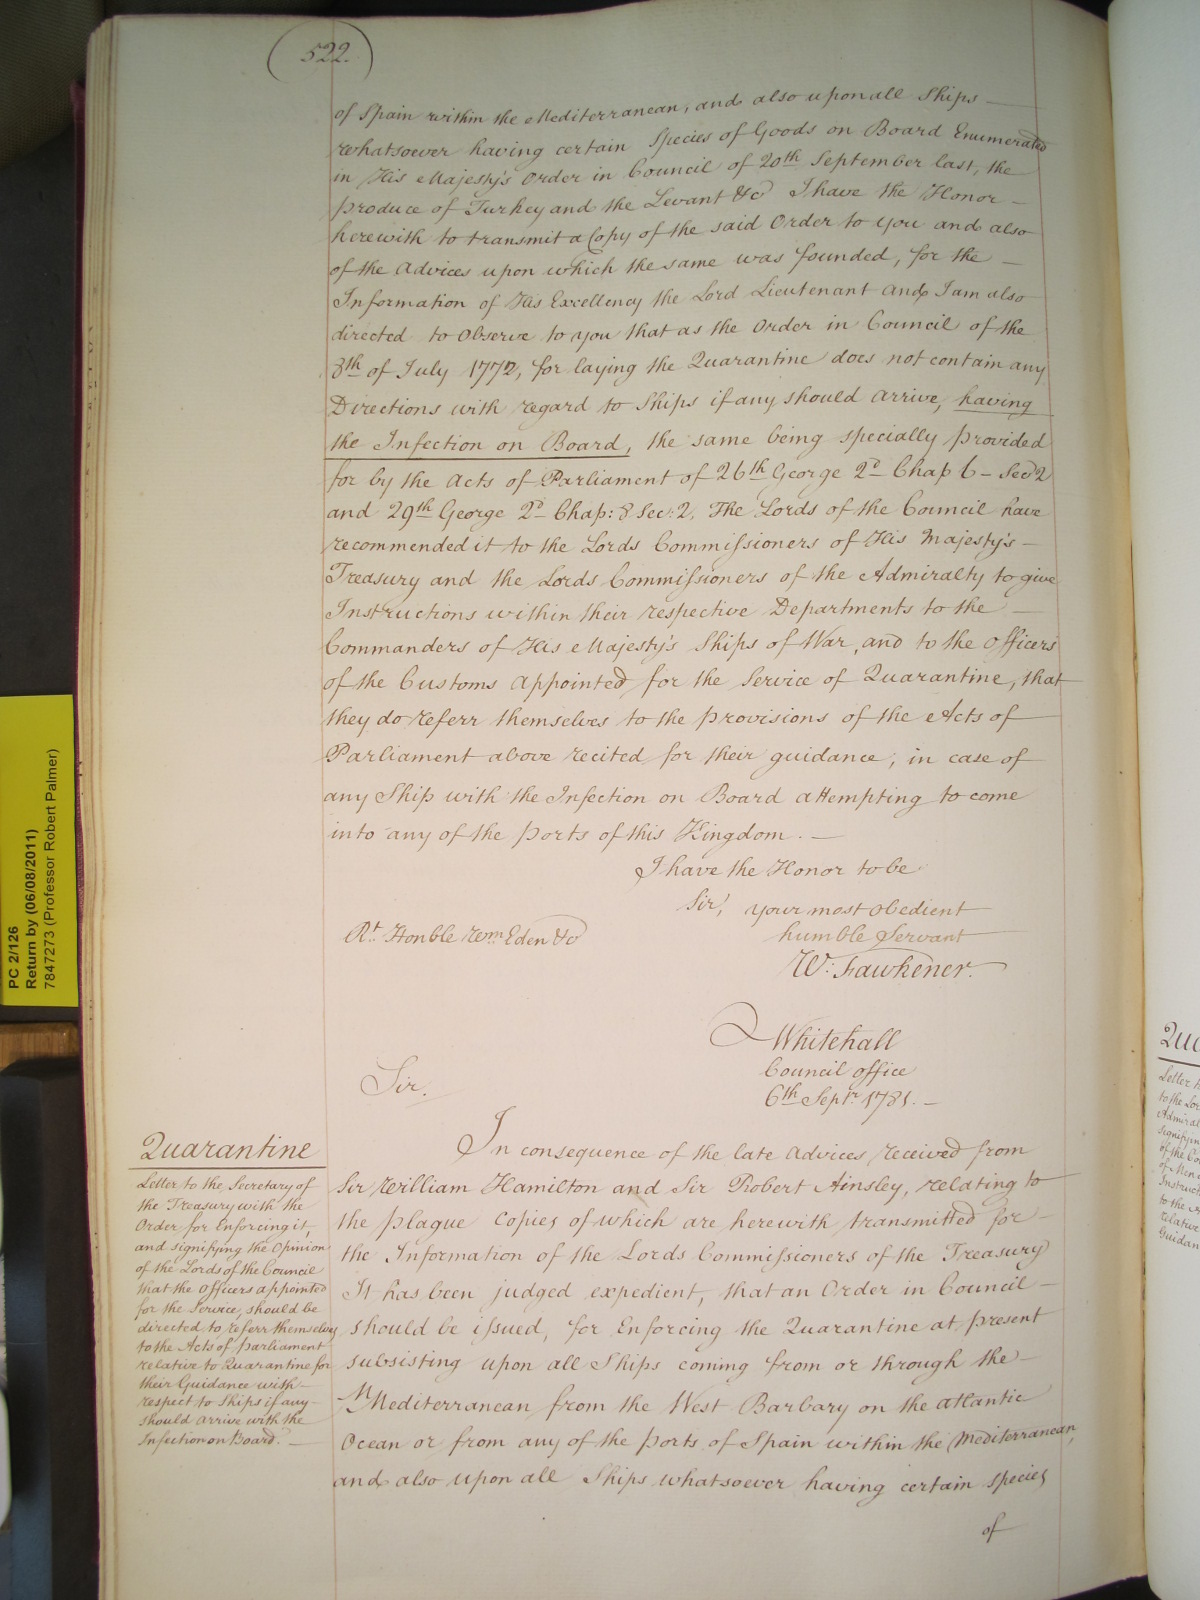 522.
of Spain within the Mediterranean, and also upon all Ships
whatsoever having certain Species of Goods on Board Enumerated
in His Majesty's Order in Council of 20th September last, the
produce of Turkey and the Levant &c I have the Honor
herewith to transmit a Copy of the said Order to you and also
of the Advices upon which the same was founded, for the
Information of His Excellency the Lord Lieutenant and I am also
directed to observe to you that as the Order in Council of the
8th of July 1772, for laying the Quarantine does not contain any
Directions with regard to Ships if any should arrive, having
the Infection on Board, the same being specially provided
for by the Acts of Parliament of 26th George 2d Chap 6 - Sec 2
and 29th George 2d Chap: 8 Sec: 2, The Lords of the Council have
recommended it to the Lords Commissioners of His Majesty's
Treasury and the Lords Commissioners of the Admiralty to give
Instructions within their respective Departments to the
Commanders of His Majesty's Ships of War, and to the Officers
of the Customs appointed for the Service of Quarantine, that
they do referr themselves to the provisions of the Acts of
Parliament above recited for their guidance, in case of
any Ship with the Infection on Board attempting to come
into any of the Ports of this Kingdom.
I have the Honor to be
Sir, your most obedient
humble Servant
W: Fawkener.
Rt. Honble Wm Eden &c
Whitehall
Council office
6th Septr. 1781.
Sir.
Quarantine
Letter to the Secretary of
the Treasury with the
Order for Enforcing it,
and signifying the Opinion
of the Lords of the Council
that the Officers appointed
for the Service, should be
directed to referr themselves
to the Acts of parliament
relative to Quarantine for
their Guidance with
respect to Ships if any
should arrive with the
Infection on Board.
In consequence of the late Advices received from
Sir William Hamilton and Sir Robert Ainsley, relating to
the plague Copies of which are herewith transmitted for
the Information of the Lords Commissioners of the Treasury
It has been judged expedient, that an Order in Council
should be issued, for Enforcing the Quarantine at present
subsisting upon all Ships coming from or through the
Mediterranean from the West Barbary on the atlantic
Ocean or from any of the ports of Spain within the Mediterranean,
and also upon all Ships whatsoever having certain species
of
PC 2/126
Return by (06/08/2011)
7847273 (Professor Robert Palmer)